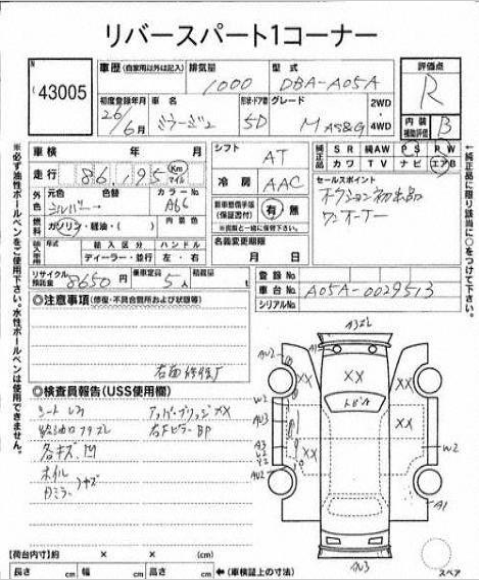 リバースパート1コーナー
43005
車歴 (自家用以外は記入) 排気量 1000 型式 DBA-A05A
評価点 R
初度登録年月 26年 6月 車名 ミラージュ 形状・ドア数 5D グレード M AS&G 2WD・4WD
内装補助評価 B
車検 年 月 シフト AT
純正品 SR 純AW PS PW
カワ TV ナビ エアB
走行 86,195 Km マイル 冷房 AAC
セールスポイント
オークション初出品
ワンオーナー
外色 元色 シルバー 色替 カラーNo A66
新車整備手帳(保証書付) 有・無
※裏面と一緒に保管下さい。
燃料 ガソリン・軽油・( ) 内装色
名義変更期限 月 日
輸入車用 年式 輸入区分 ハンドル
ディーラー・並行 左・右
リサイクル預託金 8650円 乗車定員 5人 積載量 t
登録No
車台No A05A-0029513
シリアルNo
◎注意事項 (修復・不具合箇所および状態等)
右面修復歴
◎検査員報告 (USS使用欄)
シート
アッパーブリッジXX
右Fピラー BP
各キズ 凹
ホイル
カミラー キズ
A3
AU2
A1
XX
XX
W2
AU3
トビA
XX
A3
XX
W2
AU2
A1
AU3
スペア
【荷台内寸】約 × × (cm)
長さ cm 幅 cm 高さ cm ←(車検証上の寸法)
※必ず油性ボールペンをご使用下さい。水性ボールペンは使用できません。
←純正品に限り該当に○をつけて下さい。